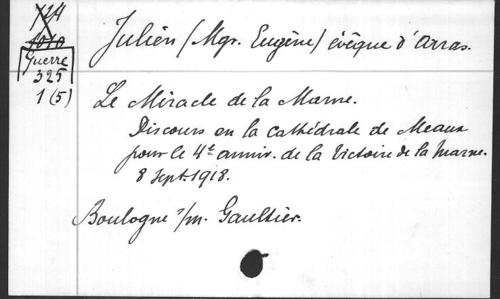 Guerre
325
1 (5)
Julien (Mgr. Eugène) évêque d'Arras.
Le Miracle de la Marne.
Discours en la cathédrale de Meaux
pour le 4e anniv. de la Victoire de la Marne.
8 Sept. 1918.
Boulogne s/m. Gaultier.